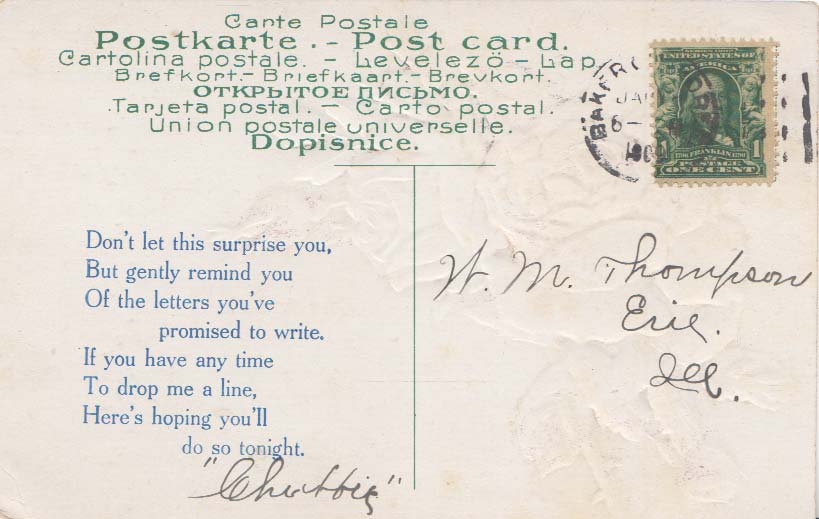 Carte Postale
Postkarte. - Post card.
Cartolina postale. - Levelező - Lap
Brefkort.- Briefkaart.- Brevkort.
ОТКРЫТОЕ ПИСЬМО.
Tarjeta postal. - Carto postal.
Union postale universelle.
Dopisnice.
UNITED STATES OF
AMERICA
1 FRANKLIN 1
POSTAGE
ONE CENT
Don't let this surprise you,
But gently remind you
Of the letters you've
promised to write.
If you have any time
To drop me a line,
Here's hoping you'll
do so tonight.
"Chubbie"
W. M. Thompson
Erie.
Ill.